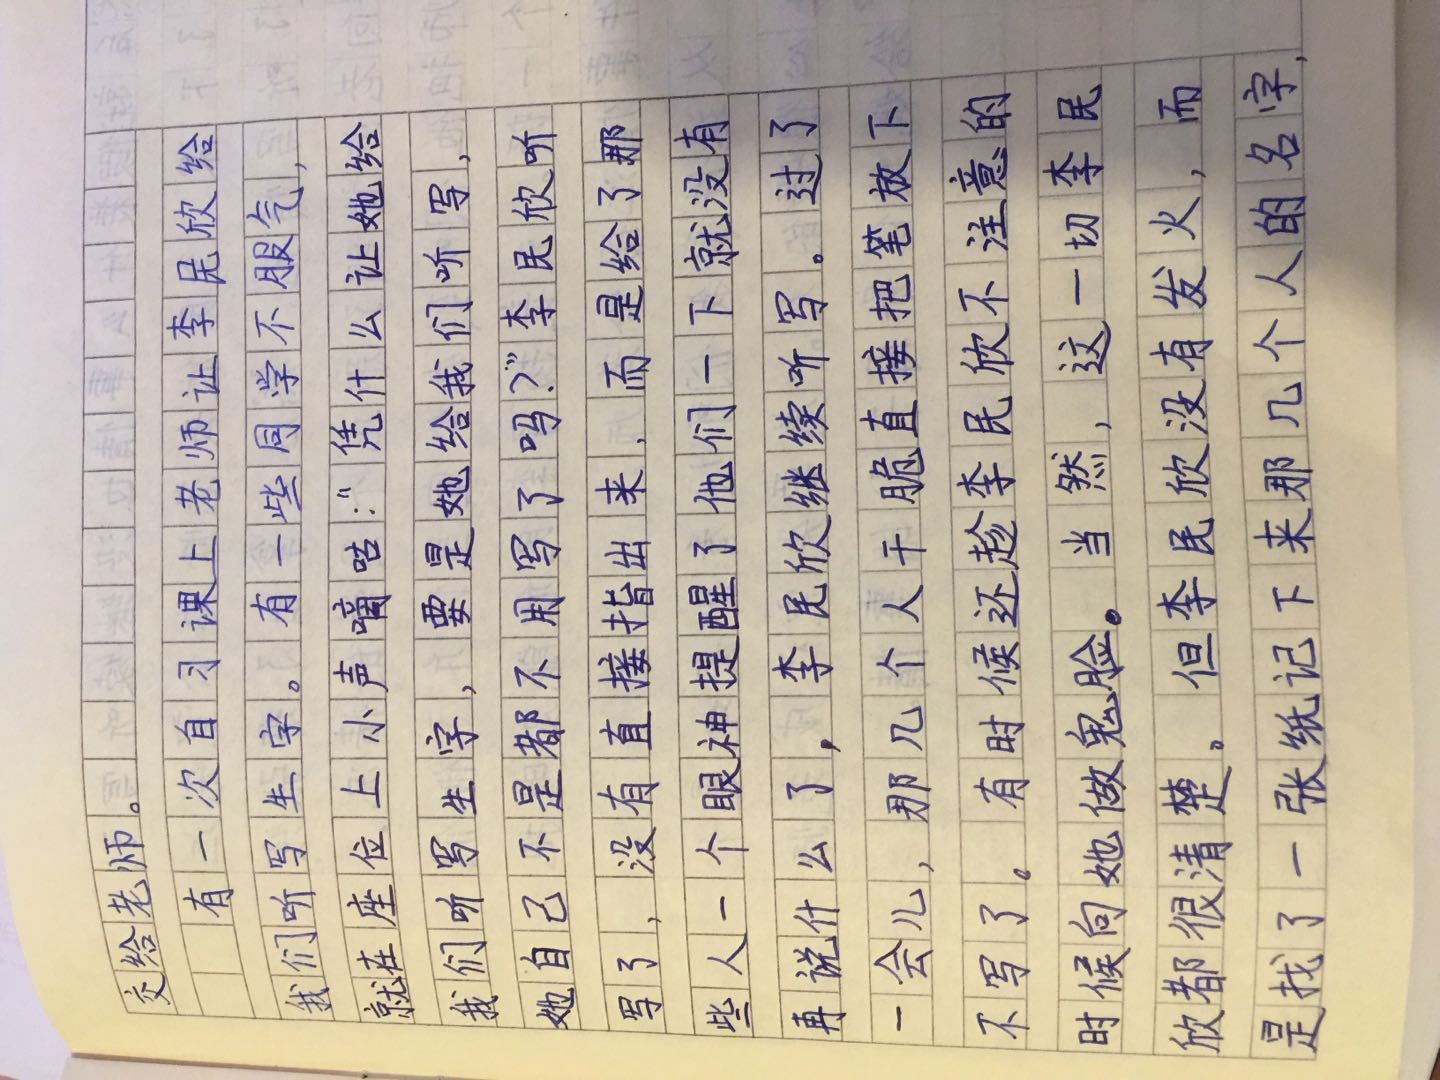 交给老师。
有一次自习课上老师让李民欣给
我们听写生字。有一些同学不服气，
就在座位上小声嘀咕：“凭什么让她给
我们听写生字，要是她给我们听写，
她自己不是都不用写了吗？”李民欣听
写了，没有直接指出来，而是给了那
些人一个眼神提醒了他们一下就没有
再说什么了，李民欣继续听写。过了
一会儿，那几个人干脆直接把笔放下
不写了。有时候还趁李民欣不注意的
时候向她做鬼脸。当然，这一切李民
欣都很清楚。但李民欣没有发火，而
是找了一张纸记下来那几个人的名字，